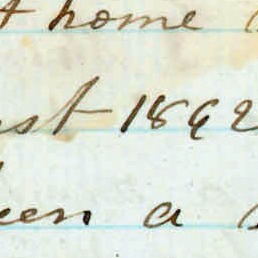 t home
st 1862
een a